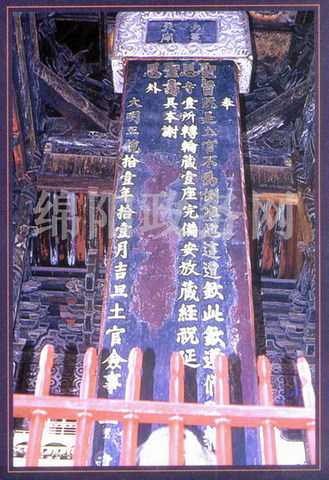 奉
聖旨既是土官不為例准他這遭欽此欽遵
恩寺壹所轉輪藏壹座完備安放藏經祝延
聖壽具本謝
恩外
大明正統拾壹年拾壹月吉旦土官僉事
绵阳政务网